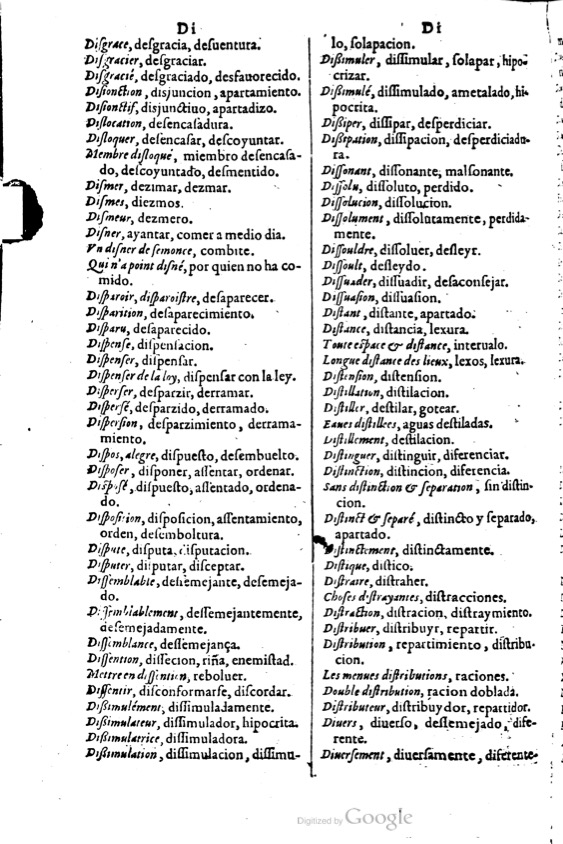 Di
Diſgrace, deſgracia, deſuentura.
Diſgracier, deſgraciar.
Diſgracié, deſgraciado, desfauorecido.
Diſionction, disjuncion, apartamiento.
Diſionctif, disjunctiuo, apartadizo.
Diſlocation, deſencaſadura.
Diſloquer, deſencaſar, deſcoyuntar.
Membre diſloqué, miembro deſencaſa-
do, deſcoyuntado, deſmentido.
Diſmer, dezimar, dezmar.
Diſmes, diezmos.
Diſmeur, dezmero.
Diſner, ayantar, comer a medio dia.
Vn diſner de ſemonce, combite.
Qui n'a point diſné, por quien no ha co-
mido.
Diſparoir, diſparoiſtre, deſaparecer.
Diſparition, deſaparecimiento.
Diſparu, deſaparecido.
Diſpenſe, diſpenſacion.
Diſpenſer, diſpenſar.
Diſpenſer de la loy, diſpenſar con la ley.
Diſperſer, deſparzir, derramar.
Diſperſé, deſparzido, derramado.
Diſperſion, deſparzimiento, derrama-
miento.
Diſpos, alegre, diſpueſto, deſembuelto.
Diſpoſer, diſponer, aſſentar, ordenar.
Diſpoſé, diſpueſto, aſſentado, ordena-
do.
Diſpoſicion, diſpoſicion, aſſentamiento,
orden, deſemboltura.
Diſpute, diſputa, diſputacion.
Diſputer, diſputar, diſceptar.
Diſſemblable, deſſemejante, deſemeja-
do.
Diſſemblablement, deſſemejantemente,
deſemejadamente.
Diſſemblance, deſſemejança.
Diſſention, diſſecion, riña, enemiſtad.
Mettre en diſſention, reboluer.
Diſſentir, diſconformarſe, diſcordar.
Dißimulément, diſſimuladamente.
Dißimulateur, diſſimulador, hipocrita.
Dißimulatrice, diſſimuladora.
Dißimulation, diſſimulacion, diſſimu-
Di
lo, ſolapacion.
Dißimuler, diſſimular, ſolapar, hipo-
crizar.
Dißimulé, diſſimulado, ametalado, hi-
pocrita.
Dißiper, diſſipar, deſperdiciar.
Dißipation, diſſipacion, deſperdiciadu-
ra.
Diſſonant, diſſonante, malſonante.
Diſſolu, diſſoluto, perdido.
Diſſolucion, diſſolucion.
Diſſolument, diſſolutamente, perdida-
mente.
Diſſouldre, diſſoluer, deſleyr.
Diſſoult, deſleydo.
Diſſuader, diſſuadir, deſaconſejar.
Diſſuaſion, diſſuaſion.
Diſtant, diſtante, apartado.
Diſtance, diſtancia, lexura.
Toute eſpace & diſtance, interualo.
Longue diſtance des lieux, lexos, lexura.
Diſtenſion, diſtenſion.
Diſtillation, diſtilacion.
Diſtiller, deſtilar, gotear.
Eaues diſtillees, aguas deſtiladas.
Diſtillement, deſtilacion.
Diſtinguer, diſtinguir, diferenciar.
Diſtinction, diſtincion, diferencia.
Sans diſtinction & ſeparation, ſin diſtin-
cion.
Diſtinct & ſeparé, diſtincto y ſeparado,
apartado.
Diſtinctement, diſtinctamente.
Diſtique, diſtico.
Diſtraire, diſtraher.
Choſes diſtrayantes, diſtracciones.
Diſtraction, diſtracion, diſtraymiento.
Diſtribuer, diſtribuyr, repartir.
Diſtribution, repartimiento, diſtribu-
cion.
Les menues diſtributions, raciones.
Double diſtribution, racion doblada.
Diſtributeur, diſtribuydor, repartidor.
Diuers, diuerſo, deſſemejado, dife-
rente.
Diuerſement, diuerſamente, diferente-
Digitized by Google